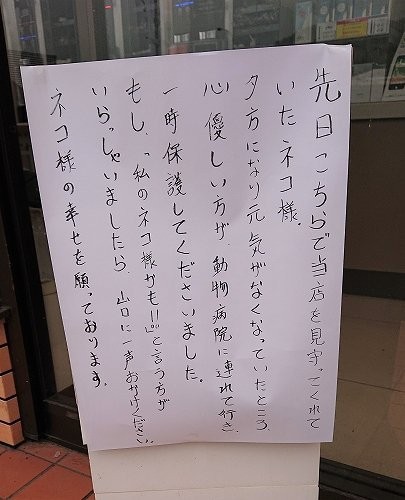 先日こちらで当店を見守ってくれて
いたネコ様。
夕方になり元気がなくなっていたところ
心優しい方が、動物病院に連れて行き、
一時保護してくださいました。
もし、「私のネコ様かも!!」と言う方が
いらっしゃいましたら、山口に一声おかけください。
ネコ様の幸せを願っております。